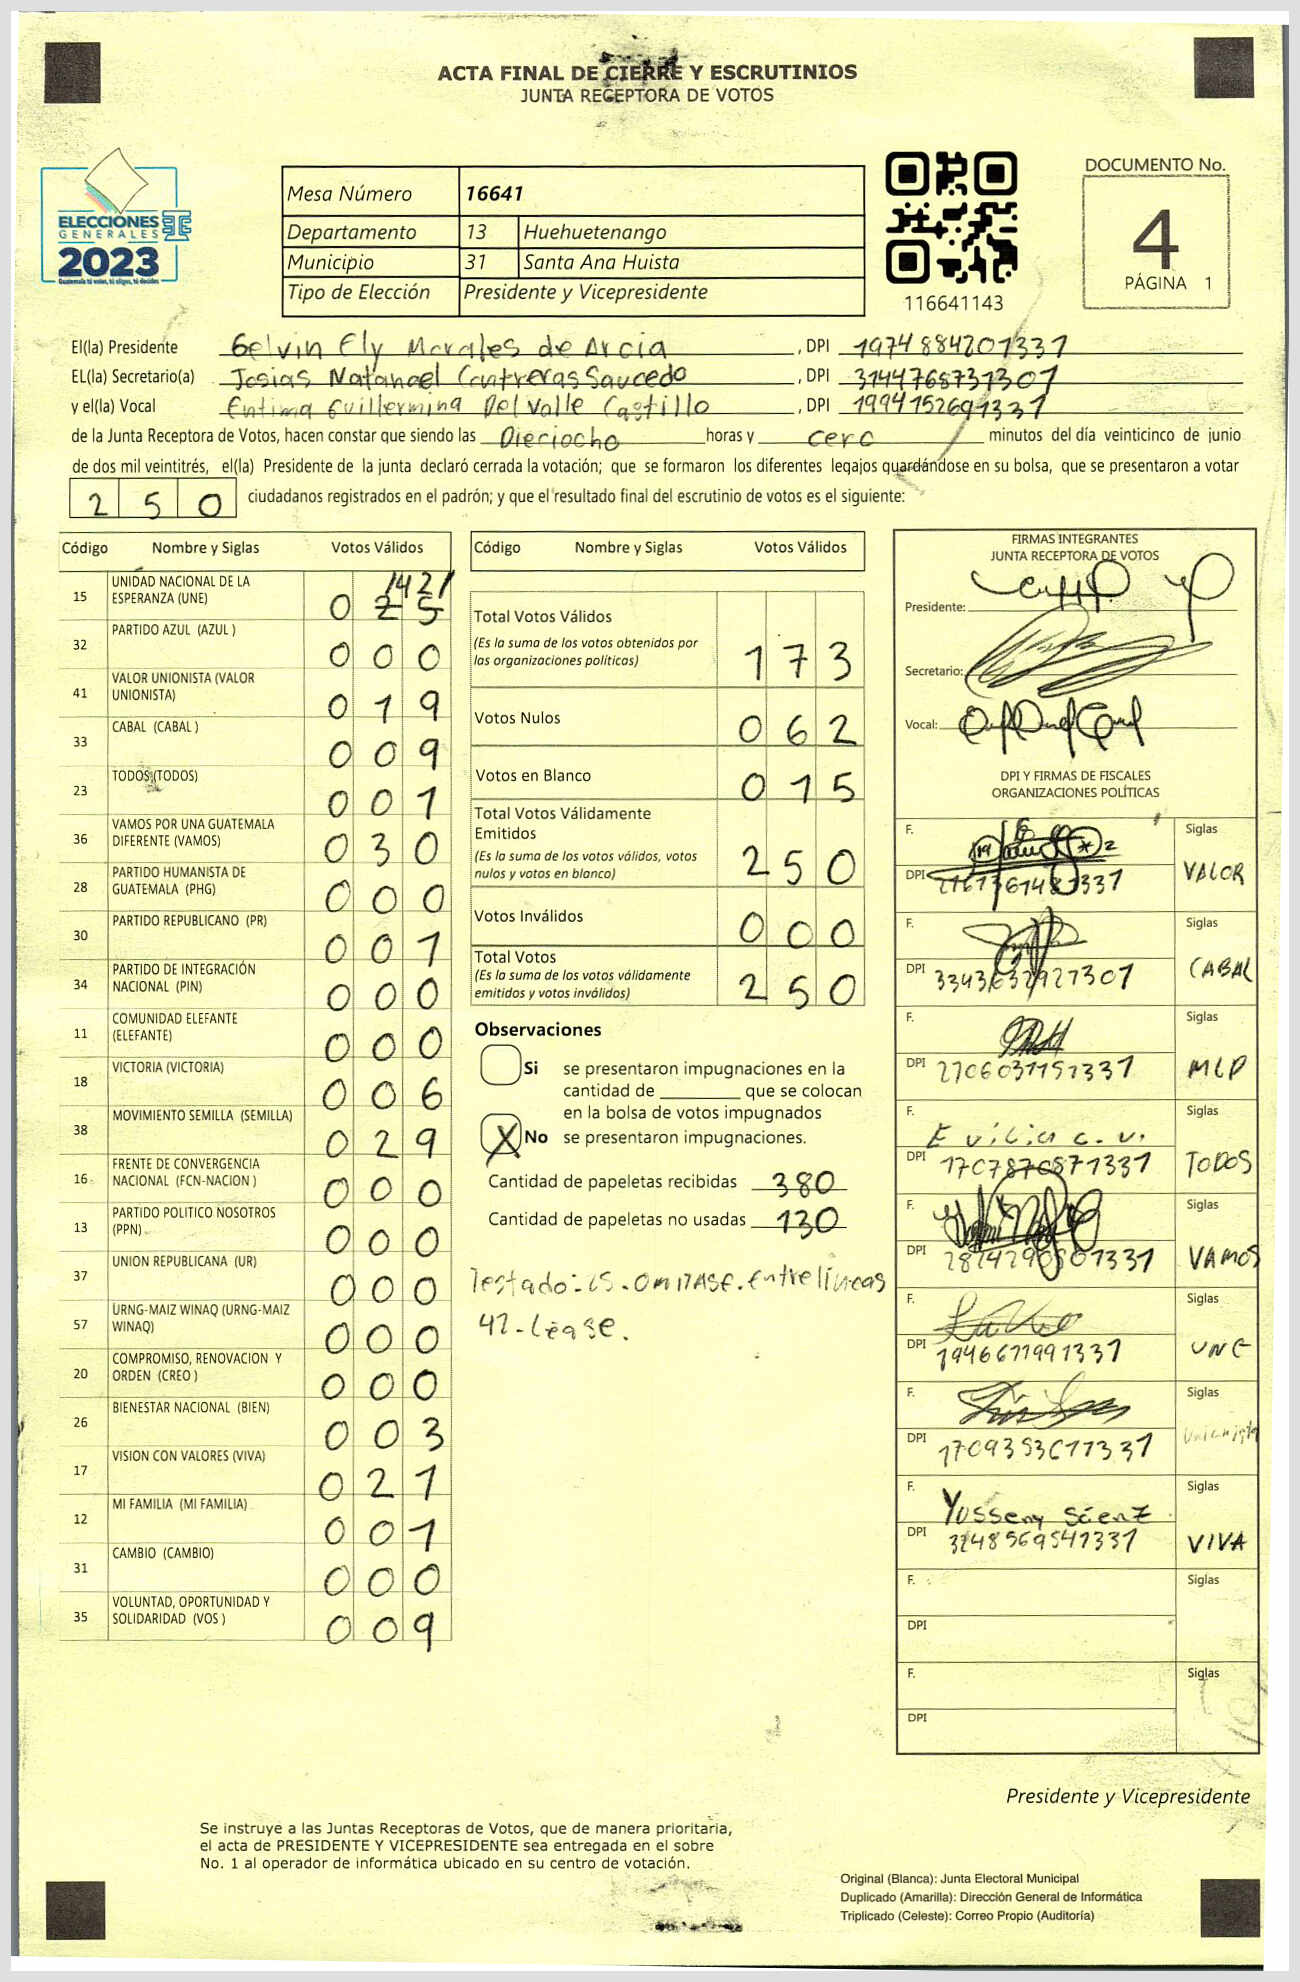 ACTA FINAL DE CIERRE Y ESCRUTINIOS
JUNTA RECEPTORA DE VOTOS
ELECCIONES
GENERALES
2023
Guatemala tú votas, tú eliges, tú decides
Mesa Número 16641
Departamento 13 Huehuetenango
Municipio 31 Santa Ana Huista
Tipo de Elección Presidente y Vicepresidente
116641143
DOCUMENTO No.
4
PÁGINA 1
El(la) Presidente Gelvin Ely Morales de Arcia, DPI 1974884201331
EL(la) Secretario(a) Josias Natanael Contreras Saucedo, DPI 3144768731307
y el(la) Vocal Guillermina Del Valle Castillo, DPI 1994152691331
de la Junta Receptora de Votos, hacen constar que siendo las Dieciocho horas y cero minutos del día veinticinco de junio
de dos mil veintitrés, el(la) Presidente de la junta declaró cerrada la votación; que se formaron los diferentes legajos guardándose en su bolsa, que se presentaron a votar
2 5 0 ciudadanos registrados en el padrón; y que el resultado final del escrutinio de votos es el siguiente:
Código Nombre y Siglas Votos Válidos
15 UNIDAD NACIONAL DE LA ESPERANZA (UNE) 0 2 5 / 42 /
32 PARTIDO AZUL (AZUL ) 0 0 0
41 VALOR UNIONISTA (VALOR UNIONISTA) 0 1 9
33 CABAL (CABAL ) 0 0 9
23 TODOS (TODOS) 0 0 1
36 VAMOS POR UNA GUATEMALA DIFERENTE (VAMOS) 0 3 0
28 PARTIDO HUMANISTA DE GUATEMALA (PHG) 0 0 0
30 PARTIDO REPUBLICANO (PR) 0 0 1
34 PARTIDO DE INTEGRACIÓN NACIONAL (PIN) 0 0 0
11 COMUNIDAD ELEFANTE (ELEFANTE) 0 0 0
18 VICTORIA (VICTORIA) 0 0 6
38 MOVIMIENTO SEMILLA (SEMILLA) 0 2 9
16 FRENTE DE CONVERGENCIA NACIONAL (FCN-NACION ) 0 0 0
13 PARTIDO POLITICO NOSOTROS (PPN) 0 0 0
37 UNION REPUBLICANA (UR) 0 0 0
57 URNG-MAIZ WINAQ (URNG-MAIZ WINAQ) 0 0 0
20 COMPROMISO, RENOVACION Y ORDEN (CREO ) 0 0 0
26 BIENESTAR NACIONAL (BIEN) 0 0 3
17 VISION CON VALORES (VIVA) 0 2 1
12 MI FAMILIA (MI FAMILIA) 0 0 1
31 CAMBIO (CAMBIO) 0 0 0
35 VOLUNTAD, OPORTUNIDAD Y SOLIDARIDAD (VOS ) 0 0 9
Código Nombre y Siglas Votos Válidos
Total Votos Válidos
(Es la suma de los votos obtenidos por
las organizaciones políticas) 1 7 3
Votos Nulos 0 6 2
Votos en Blanco 0 1 5
Total Votos Válidamente
Emitidos
(Es la suma de los votos válidos, votos
nulos y votos en blanco) 2 5 0
Votos Inválidos 0 0 0
Total Votos
(Es la suma de los votos válidamente
emitidos y votos inválidos) 2 5 0
Observaciones
Si se presentaron impugnaciones en la
cantidad de ________ que se colocan
en la bolsa de votos impugnados
X No se presentaron impugnaciones.
Cantidad de papeletas recibidas 380
Cantidad de papeletas no usadas 130
Testado-25-OMITASE. Entrelíneas
42-Léase.
FIRMAS INTEGRANTES
JUNTA RECEPTORA DE VOTOS
Presidente:
Secretario:
Vocal:
DPI Y FIRMAS DE FISCALES
ORGANIZACIONES POLÍTICAS
F. Siglas
DPI VALOR
F. Siglas
DPI CABAL
F. Siglas
DPI 2706031151331 MLP
F. Siglas
DPI 1707870871331 TODOS
F. Siglas
DPI VAMOS
F. Siglas
DPI 1946671991331 UNE
F. Siglas
DPI 1709353611331 Unionista
F. Yosseny Sáenz Siglas
DPI 3248569541331 VIVA
F. Siglas
DPI
F. Siglas
DPI
Presidente y Vicepresidente
Se instruye a las Juntas Receptoras de Votos, que de manera prioritaria,
el acta de PRESIDENTE Y VICEPRESIDENTE sea entregada en el sobre
No. 1 al operador de informática ubicado en su centro de votación.
Original (Blanca): Junta Electoral Municipal
Duplicado (Amarilla): Dirección General de Informática
Triplicado (Celeste): Correo Propio (Auditoría)